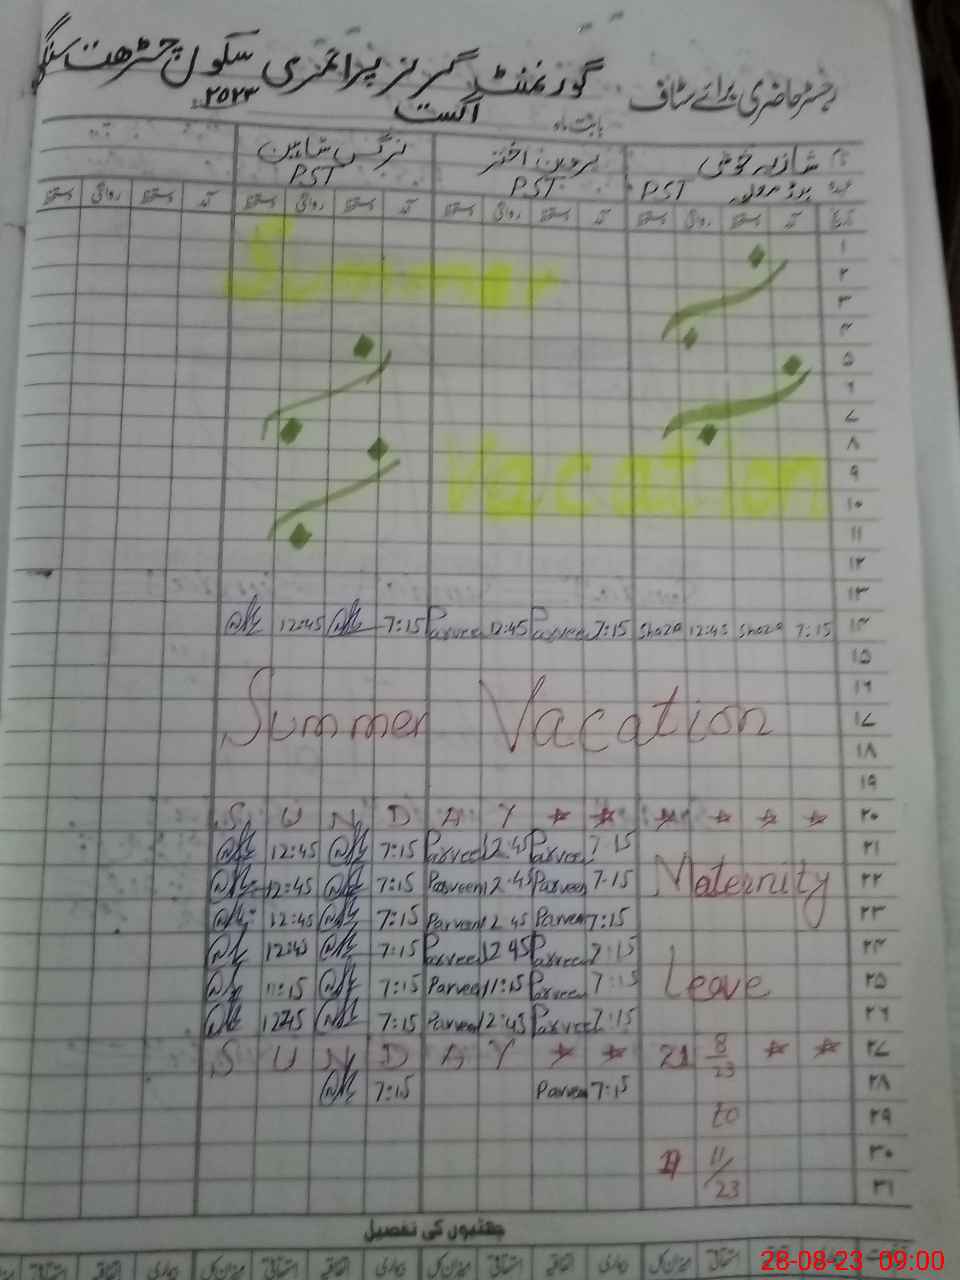 گورنمنٹ گرلز پرائمری سکول چڑھت سنگھ
رجسٹر حاضری برائے سٹاف
بابت ماہ اگست ۲۰۲۳
نام شازیہ پروین اختر نرگس شاہین
عہدہ PST PST PST
تاریخ آمد دستخط روانگی دستخط آمد دستخط روانگی دستخط آمد دستخط روانگی دستخط آمد دستخط روانگی دستخط
۱
Summer
۲
۳
۴
۵
۶
۷
۸
Vacation
۹
۱۰
۱۱
۱۲
۱۳
12:45 7:15 Parveen 12:45 Parveen 7:15 Shaza 12:45 Shaza 7:15 ۱۴
۱۵
۱۶
Summer Vacation ۱۷
۱۸
۱۹
SUNDAY ۲۰
12:45 7:15 Parveen 12:45 Parveen 7:15 ۲۱
12:45 7:15 Parveen 12:45 Parveen 7:15 Maternity ۲۲
12:45 7:15 Parveen 12 45 Parveen 7:15 ۲۳
12:45 7:15 Parveen 12 45 Parveen 7:15 ۲۴
11:15 7:15 Parveen 11:15 Parveen 7:15 Leave ۲۵
12:45 7:15 Parveen 12:45 Parveen 7:15 ۲۶
SUNDAY 21 8/23 ۲۷
7:15 Parveen 7:15 ۲۸
to ۲۹
11/23 ۳۰
۳۱
چھٹیوں کی تفصیل
28-08-23 09:00